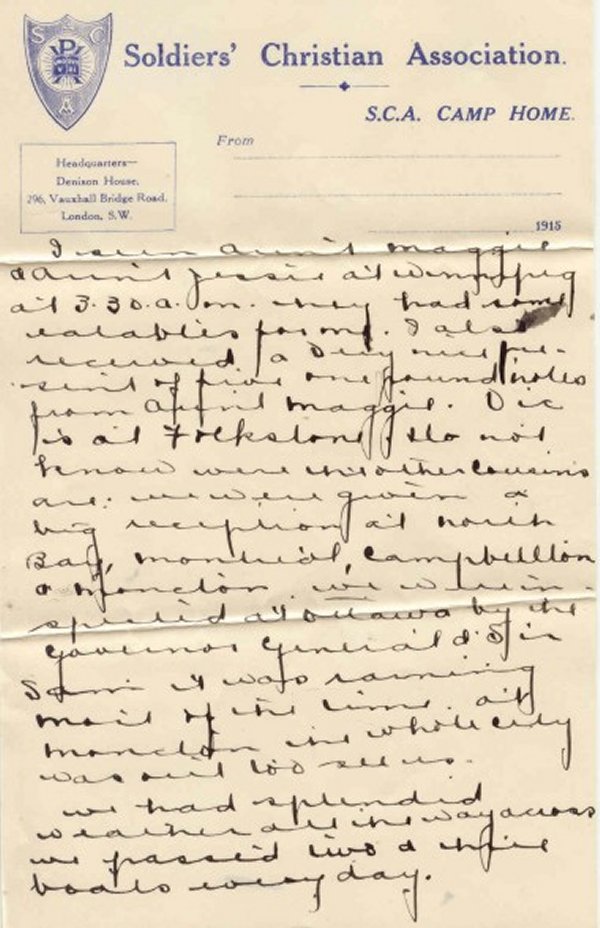 S C
A
Soldiers' Christian Association.
S.C.A. CAMP HOME.
From
Headquarters—
Denison House,
296, Vauxhall Bridge Road,
London, S.W.
1915
I seen Aunt Maggie
& Aunt Jessie at Winnipeg
at 3.30 a.m. they had some
eatables for me. I also
received a very nice pre-
sent of five one pound notes
from Aunt Maggie. Vic
is at Folkstone, I do not
know were the other cousins
are. we were given a
big reception at North
Bay, Montreal, Campbellton
& Moncton. we were in-
spected at Ottawa by the
Governor General & Sir
Sam it was raining
most of the time. at
Moncton the whole city
was out too see us.
we had splended
weather all the way across
we passed two & three
boats every day.